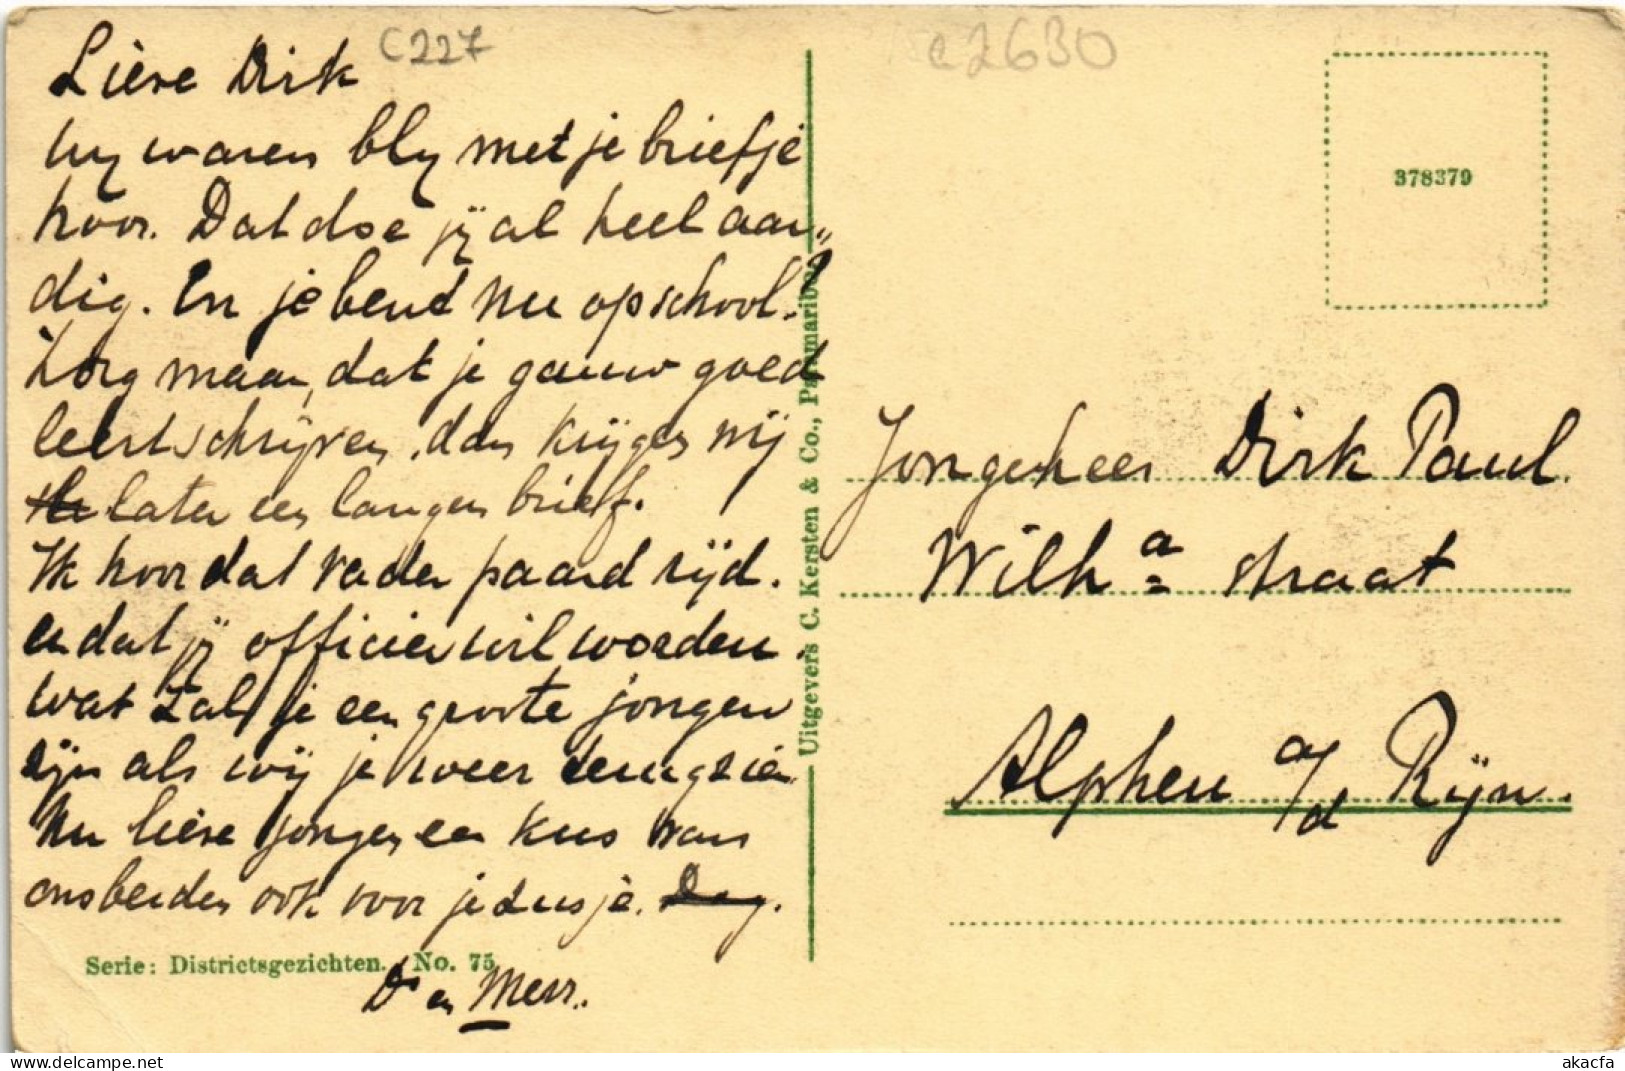 C227
c2630
Lieve Dirk
Wy waren bly met je briefje
hoor. Dat doe jij al heel aar„
dig. En je bent nu op school?
Zorg maar, dat je gauw goed
leert schrijven, dan krijgen wij
later een langen brief.
Ik hoor dat vader paard rijd.
en dat jij officier wil worden.
wat zal je een groote jongen
zijn als wij je weer terugzien.
Nu lieve jongen een kus van
ons beiden ook voor je zusje. Dag.
Serie: Districtsgezichten. No. 75
en Mevr.
Uitgevers C. Kersten & Co., Paramaribo.
378379
Jongeheer Dirk Paul.
Wilh a straat
Alphen a/d Rijn.
akacfa